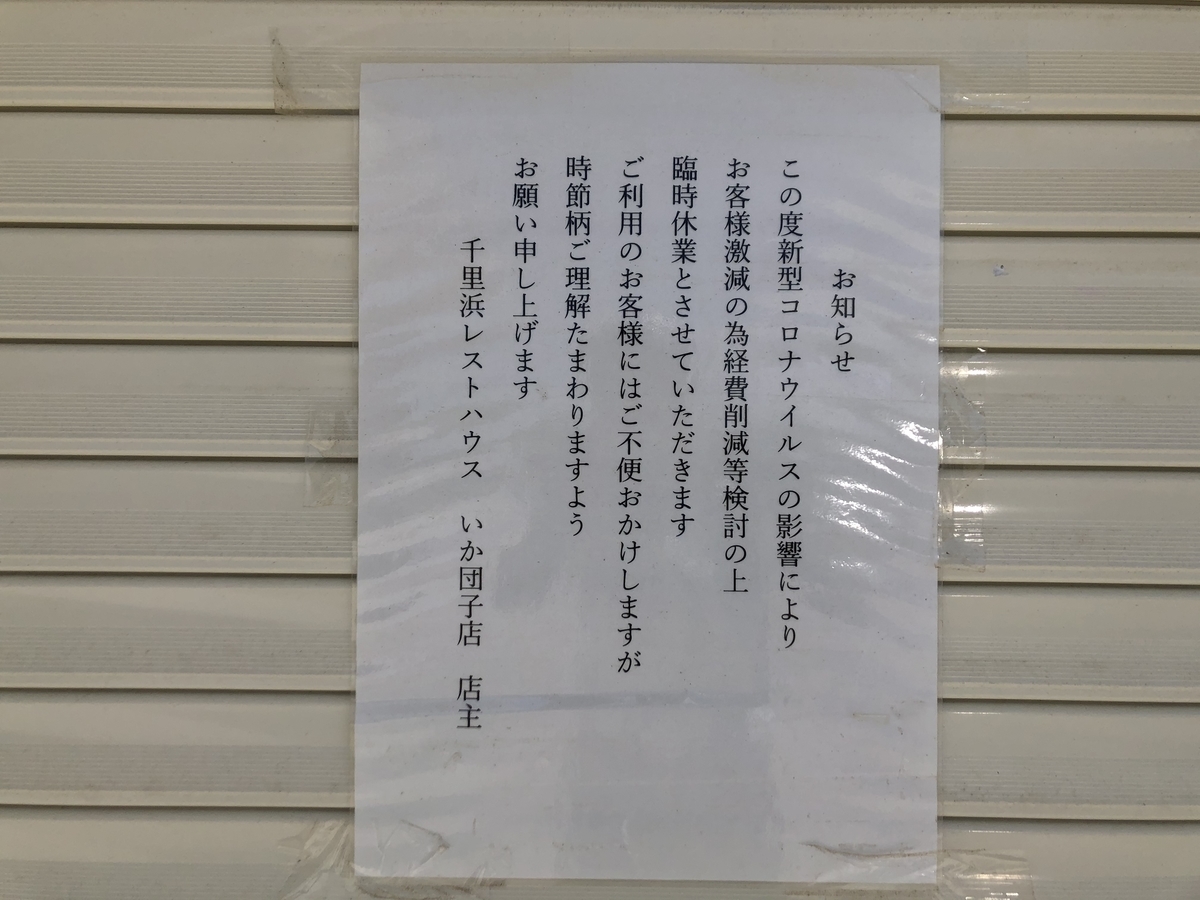 お知らせ
この度新型コロナウイルスの影響により
お客様激減の為経費削減等検討の上
臨時休業とさせていただきます
ご利用のお客様にはご不便おかけしますが
時節柄ご理解たまわりますよう
お願い申し上げます
千里浜レストハウス　いか団子店　店主